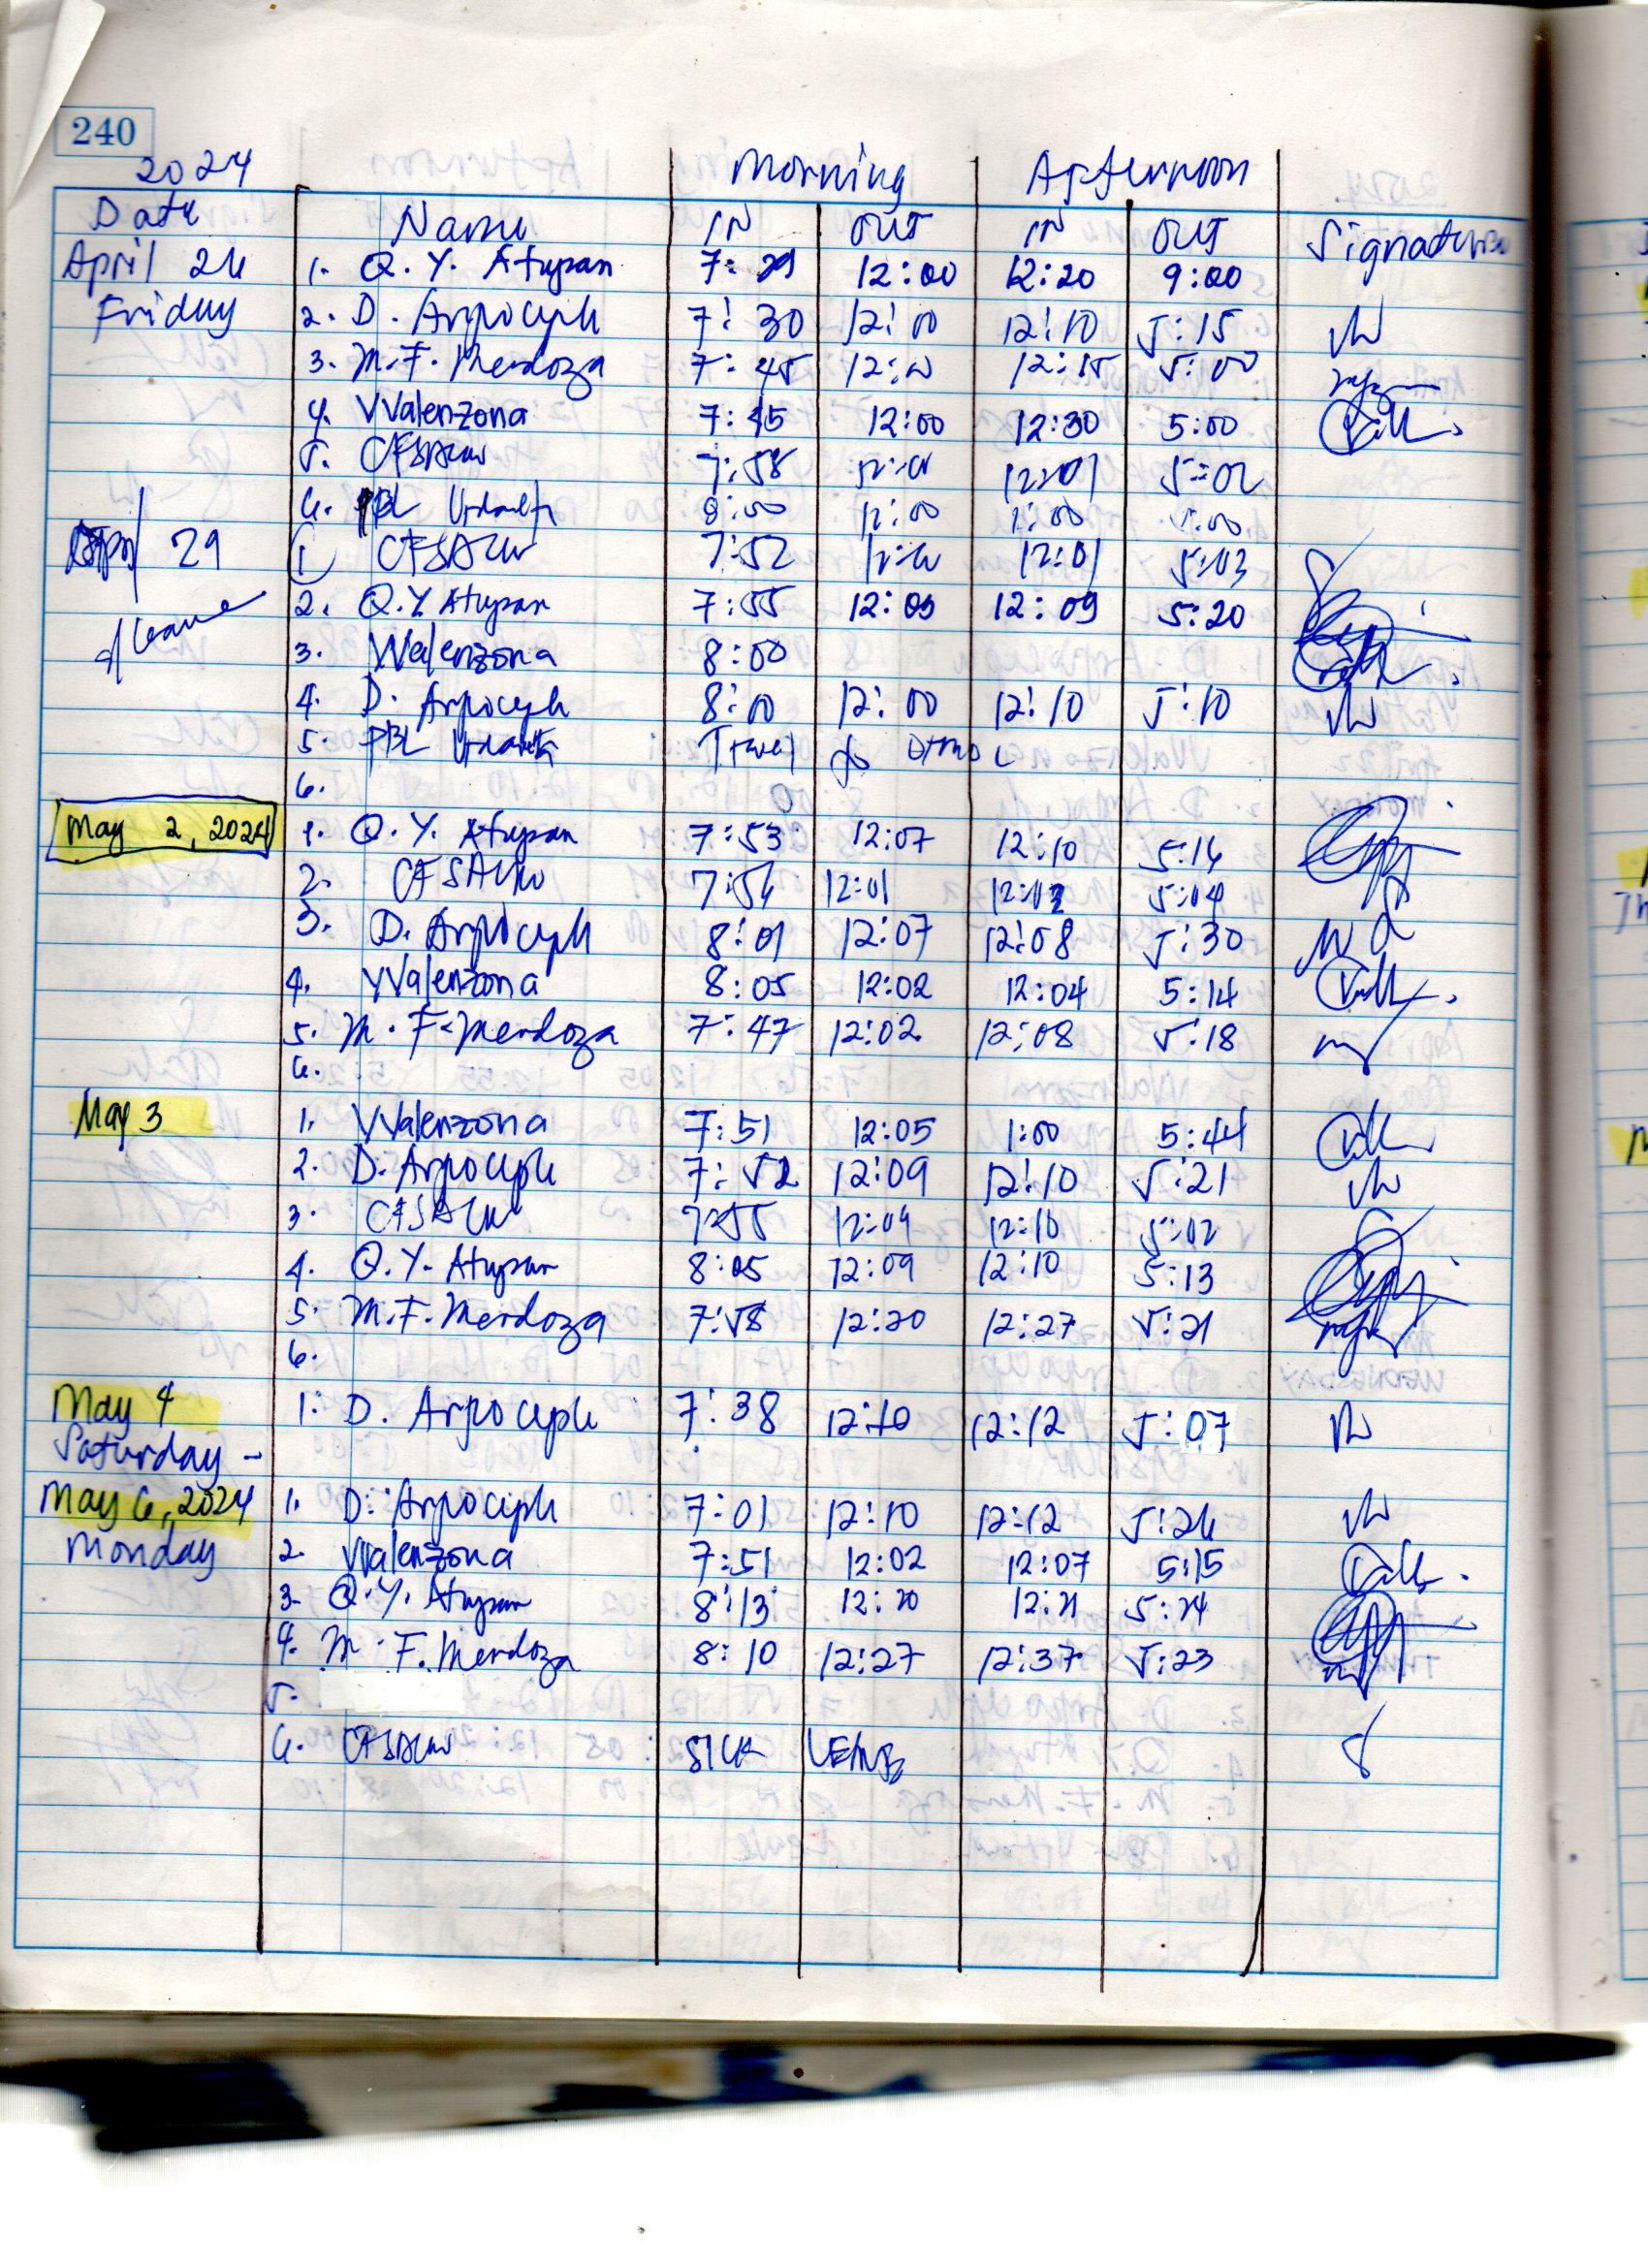 240
2024 Morning Afternoon
Date Name IN OUT IN OUT Signature
April 26 1. Q. Y. Atupan 7: 12:00 12:20 9:00
Friday 2. D. Arpoceple 7:30 12:00 12:10 5:15
3. M. F. Mendoza 7:45 12:00 12:15 5:00
4. VValenzona 7:45 12:00 12:30 5:00
5. 7:58 12:01 5:02
6. PBL 8:00 12:00 1:00 5:00
April 29 1 7:52 12:01 5:03
2. Q.Y. Atupan 7:55 12:09 5:20
3. VValenzona 8:00
4. D. Arpoceple 8:10 12:00 12:10 5:10
5. PBL Travel to Ormoc
6.
May 2, 2024 1. Q. Y. Atupan 7:53 12:07 12:10 5:16
2. 7:56 12:01 12:02 5:04
3. D. Arpoceple 8:01 12:07 12:08 5:30
4. VValenzona 8:05 12:02 12:04 5:14
5. M. F. Mendoza 7:47 12:02 12:08 5:18
6.
May 3 1. VValenzona 7:51 12:05 1:00 5:44
2. D. Arpoceple 7:52 12:09 12:10 5:21
3. 7:55 12:09 12:10 5:02
4. Q.Y. Atupan 8:05 12:09 12:10 5:13
5. M.F. Mendoza 7:58 12:20 12:27 5:21
6.
May 4 1. D. Arpoceple 7:38 12:10 12:12 5:07
Saturday -
May 6, 2024 1. D. Arpoceple 7:01 12:10 12:12 5:26
Monday 2. VValenzona 7:51 12:02 12:07 5:15
3. Q.Y. Atupan 8:13 12:20 12:21 5:24
4. M. F. Mendoza 8:10 12:27 12:37 5:23
5.
6. SICK LEAVE